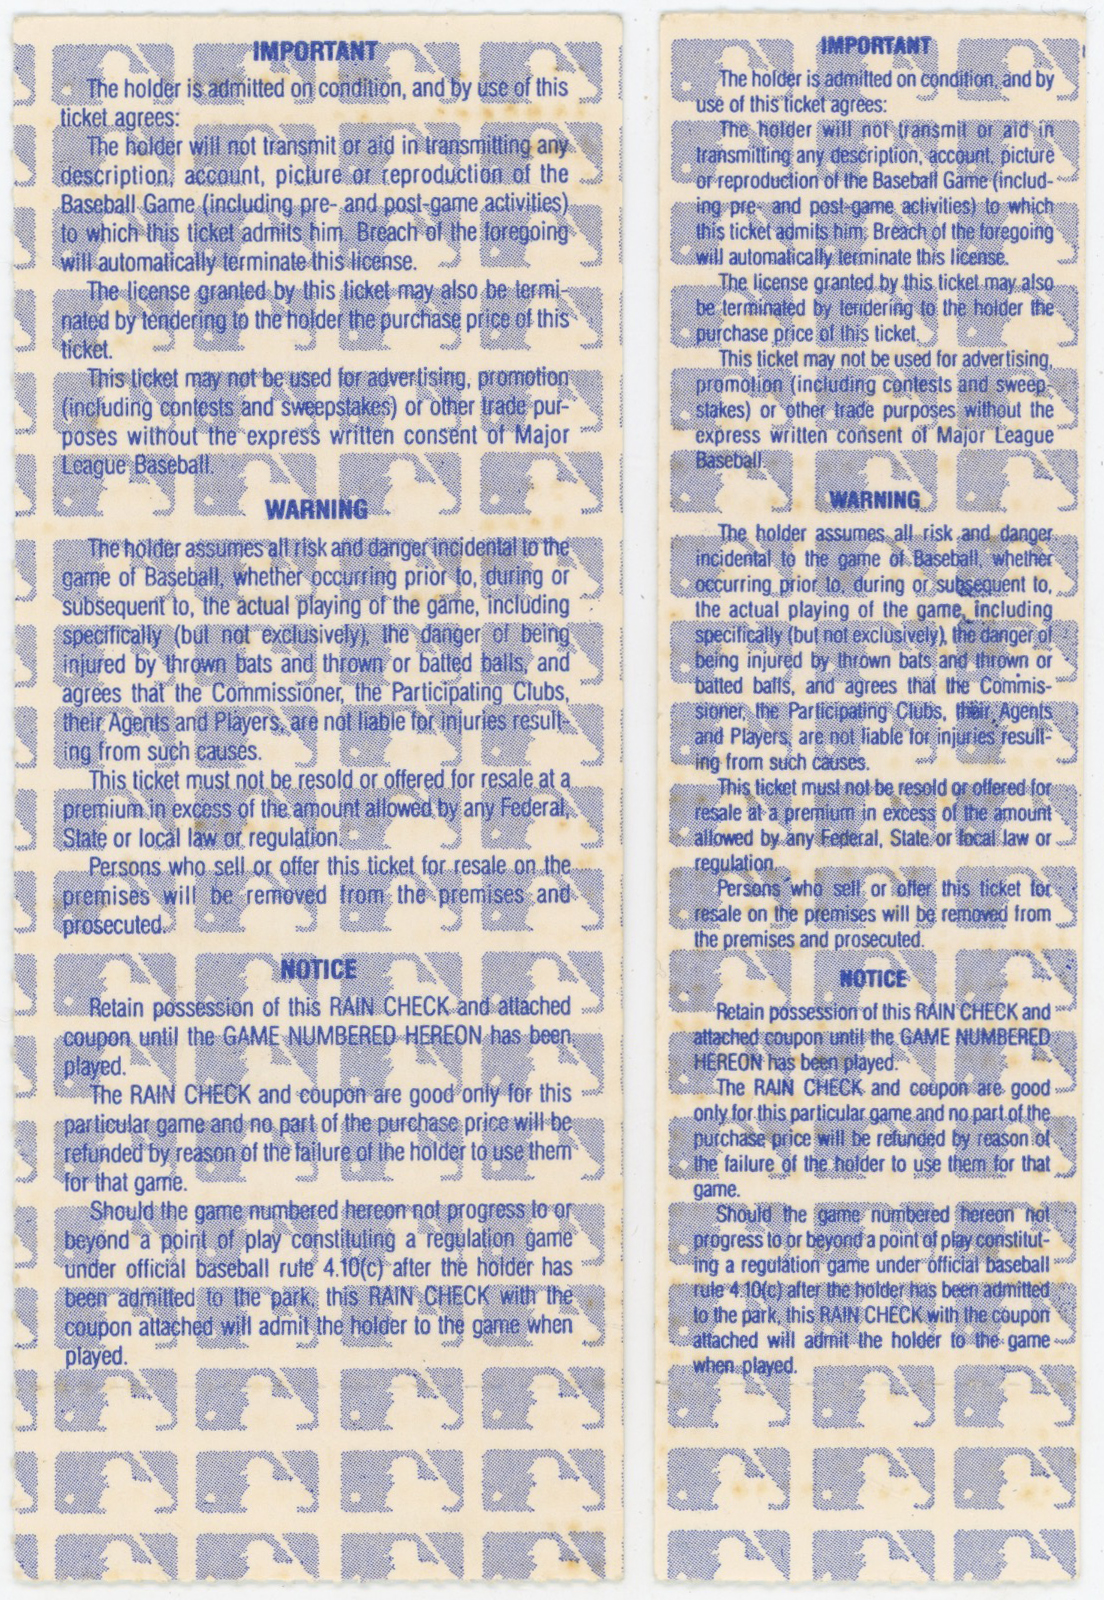 IMPORTANT
The holder is admitted on condition, and by use of this
ticket agrees:
The holder will not transmit or aid in transmitting any
description, account, picture or reproduction of the
Baseball Game (including pre- and post-game activities)
to which this ticket admits him. Breach of the foregoing
will automatically terminate this license.
The license granted by this ticket may also be termi-
nated by tendering to the holder the purchase price of this
ticket.
This ticket may not be used for advertising, promotion
(including contests and sweepstakes) or other trade pur-
poses without the express written consent of Major
League Baseball.
WARNING
The holder assumes all risk and danger incidental to the
game of Baseball, whether occurring prior to, during or
subsequent to, the actual playing of the game, including
specifically (but not exclusively), the danger of being
injured by thrown bats and thrown or batted balls, and
agrees that the Commissioner, the Participating Clubs,
their Agents and Players, are not liable for injuries result-
ing from such causes.
This ticket must not be resold or offered for resale at a
premium in excess of the amount allowed by any Federal,
State or local law or regulation.
Persons who sell or offer this ticket for resale on the
premises will be removed from the premises and
prosecuted.
NOTICE
Retain possession of this RAIN CHECK and attached
coupon until the GAME NUMBERED HEREON has been
played.
The RAIN CHECK and coupon are good only for this
particular game and no part of the purchase price will be
refunded by reason of the failure of the holder to use them
for that game.
Should the game numbered hereon not progress to or
beyond a point of play constituting a regulation game
under official baseball rule 4.10(c) after the holder has
been admitted to the park, this RAIN CHECK with the
coupon attached will admit the holder to the game when
played.
IMPORTANT
The holder is admitted on condition, and by
use of this ticket agrees:
The holder will not transmit or aid in
transmitting any description, account, picture
or reproduction of the Baseball Game (includ-
ing pre- and post-game activities) to which
this ticket admits him. Breach of the foregoing
will automatically terminate this license.
The license granted by this ticket may also
be terminated by tendering to the holder the
purchase price of this ticket.
This ticket may not be used for advertising,
promotion (including contests and sweep-
stakes) or other trade purposes without the
express written consent of Major League
Baseball.
WARNING
The holder assumes all risk and danger
incidental to the game of Baseball, whether
occurring prior to, during or subsequent to,
the actual playing of the game, including
specifically (but not exclusively), the danger of
being injured by thrown bats and thrown or
batted balls, and agrees that the Commis-
sioner, the Participating Clubs, their Agents
and Players, are not liable for injuries result-
ing from such causes.
This ticket must not be resold or offered for
resale at a premium in excess of the amount
allowed by any Federal, State or local law or
regulation.
Persons who sell or offer this ticket for
resale on the premises will be removed from
the premises and prosecuted.
NOTICE
Retain possession of this RAIN CHECK and
attached coupon until the GAME NUMBERED
HEREON has been played.
The RAIN CHECK and coupon are good
only for this particular game and no part of the
purchase price will be refunded by reason of
the failure of the holder to use them for that
game.
Should the game numbered hereon not
progress to or beyond a point of play constitut-
ing a regulation game under official baseball
rule 4.10(c) after the holder has been admitted
to the park, this RAIN CHECK with the coupon
attached will admit the holder to the game
when played.